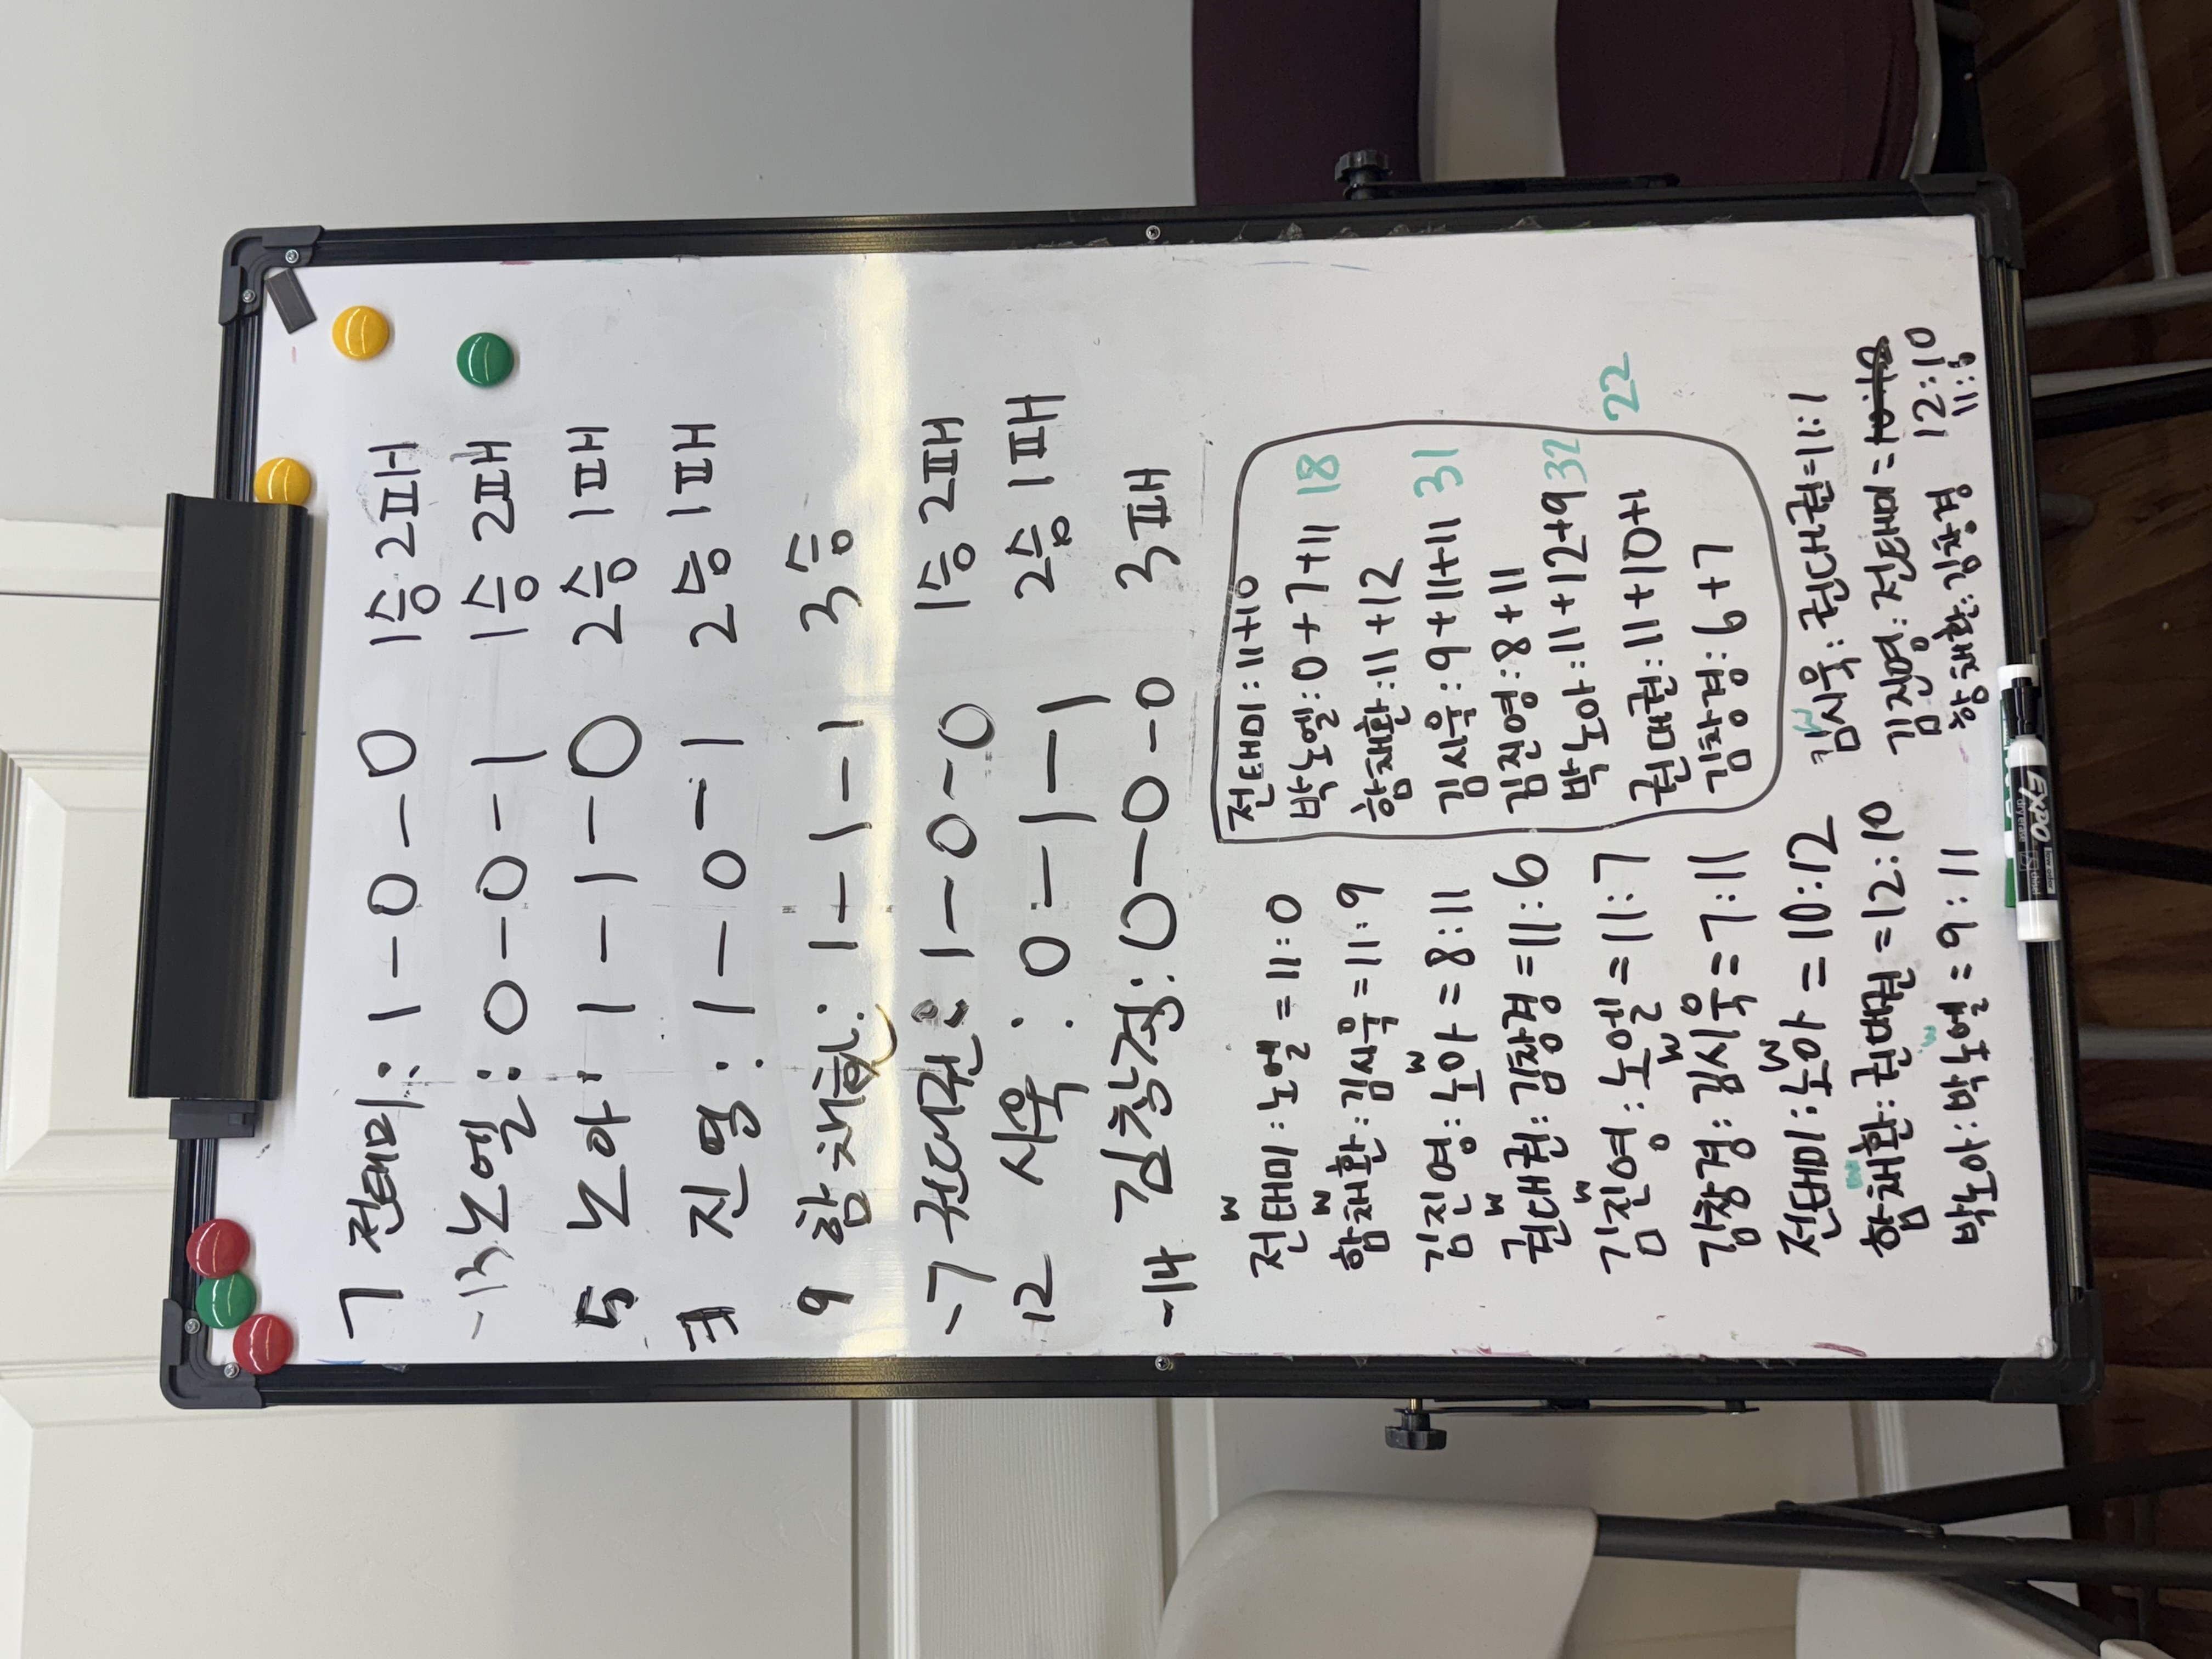 7 전태미 : 1 - 0 - 0 1승 2패
-13 노엘 : 0 - 0 - 1 1승 2패
5 노아 : 1 - 1 - 0 2승 1패
진영 : 1 - 0 - 1 2승 1패
9 함채환 : 1 - 1 - 1 3승
-7 권대권 : 1 - 0 - 0 1승 2패
12 시욱 : 0 - 1 - 1 2승 1패
-14 김창경 : 0 - 0 - 0 3패
W
전태미 : 노엘 = 11 : 0
W
함채환 : 김시욱 = 11 : 9
W
김진영 : 노아 = 8 : 11
W
권대권 : 김창경 = 11 : 6
W
김진영 : 노엘 = 11 : 7
W
김창경 : 김시욱 = 7 : 11
W
전태미 : 노아 = 10 : 12
함채환 : 권대권 = 12 : 10
W
박노아 : 박노엘 = 9 : 11
전태미 : 11+10
박노엘 : 0+7+11 18
함채환 : 11+12
김시욱 : 9+11+11 31
김진영 : 8+11
박노아 : 11+12+9 32
권대권 : 11+10+1 22
김창경 : 6+7
W
김시욱 : 권대권 = 11 : 1
김진영 : 전태미 = 12 : 10
함채환 : 김창경
EXPO